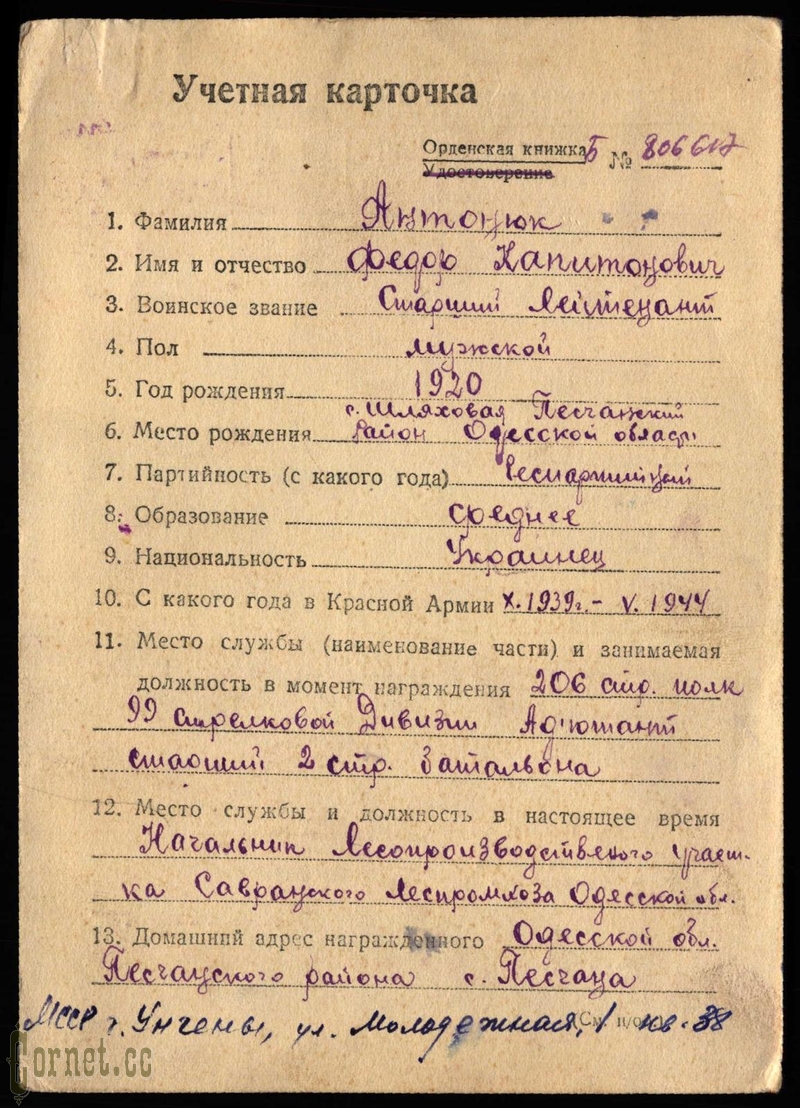 Учетная карточка
Орденская книжка Б № 806617
Удостоверение
1. Фамилия Антонюк
2. Имя и отчество Федор Капитонович
3. Воинское звание Старший Лейтенант
4. Пол мужской
5. Год рождения 1920
с. Шляховая Песчанский
6. Место рождения район Одесской области
7. Партийность (с какого года) беспартийный
8. Образование среднее
9. Национальность Украинец
10. С какого года в Красной Армии X.1939г.- V.1944
11. Место службы (наименование части) и занимаемая
должность в момент награждения 206 стр. полк
99 стрелковой Дивизии Ад'ютант
старший 2 стр. батальона
12. Место службы и должность в настоящее время
Начальник Лесопроизводственого участ-
ка Савранского Леспромхоза Одесской обл.
13. Домашний адрес награжденного Одесской обл.
Песчанского района с. Песчана
МССР г. Унгены, ул. Молодежная, 1 кв. 38
Cornet.cc